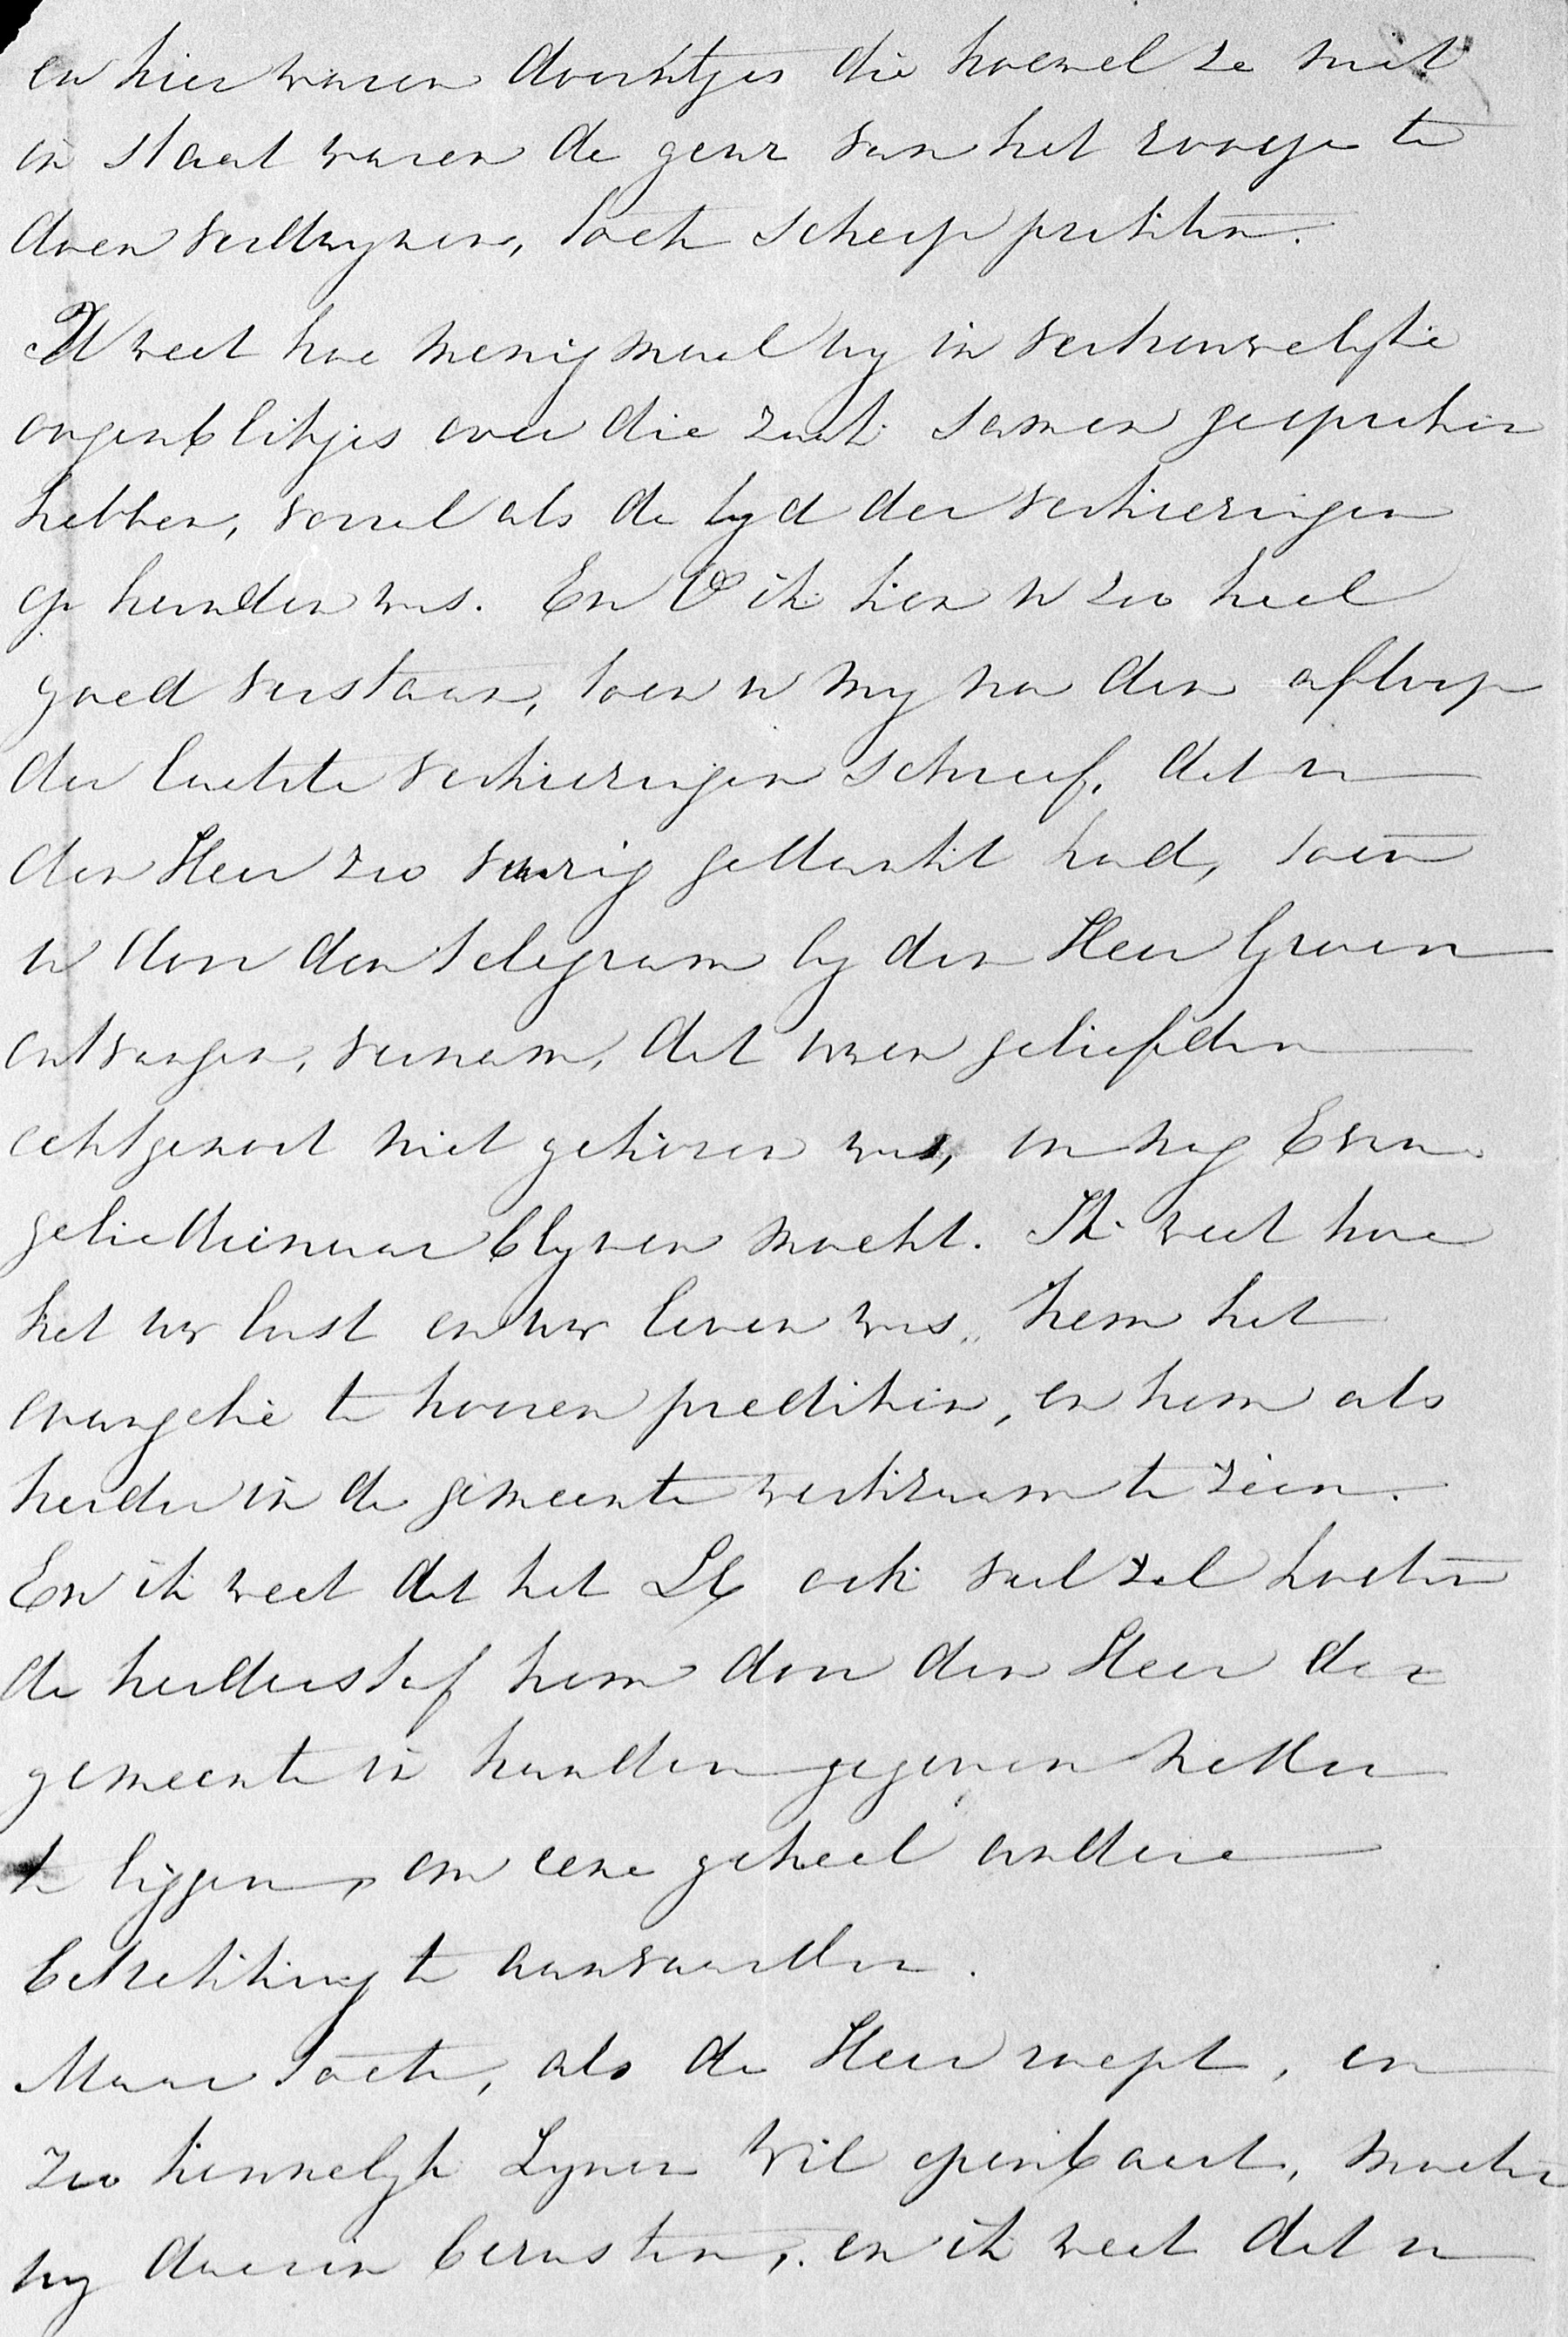 en hier waren doorntjes die hoewel ze niet
in staat waren de geur van het roosje te
doen verdwynen, toch scherp prikten.
U weet hoe menigmaal wy in vertrouwelyke
oogenblikjes over die zaak samen gesproken
hebben, vooral als de tyd der verkiezingen
op handen was. En O ik kon u zoo heel
goed verstaan, toen u my na den afloop
der laatste verkiezingen schreef, dat u
den Heer zoo vurig gedankt had, toen
u door den telegram by den Heer Groen
ontvangen, vernam, dat uwen geliefden
echtgenoot niet gekozen was, en nog Evan
geliedienaar blyven mocht. Ik weet hoe
het uw lust en uw leven was, hem het
evangelie te hooren prediken, en hem als
herder in de gemeente werkzaam te zien.
En ik weet dat het ook veel zal kosten
de herdersstaf hem door den Heer der
gemeente in handen gegeven neder
te leggen, om eene geheel andere
betrekking te aanvaarden.
Maar toch, als de Heer roept, en
zoo kennelyk Zynen Wil openbaart, moeten
wy daarin berusten, en ik weet dat u